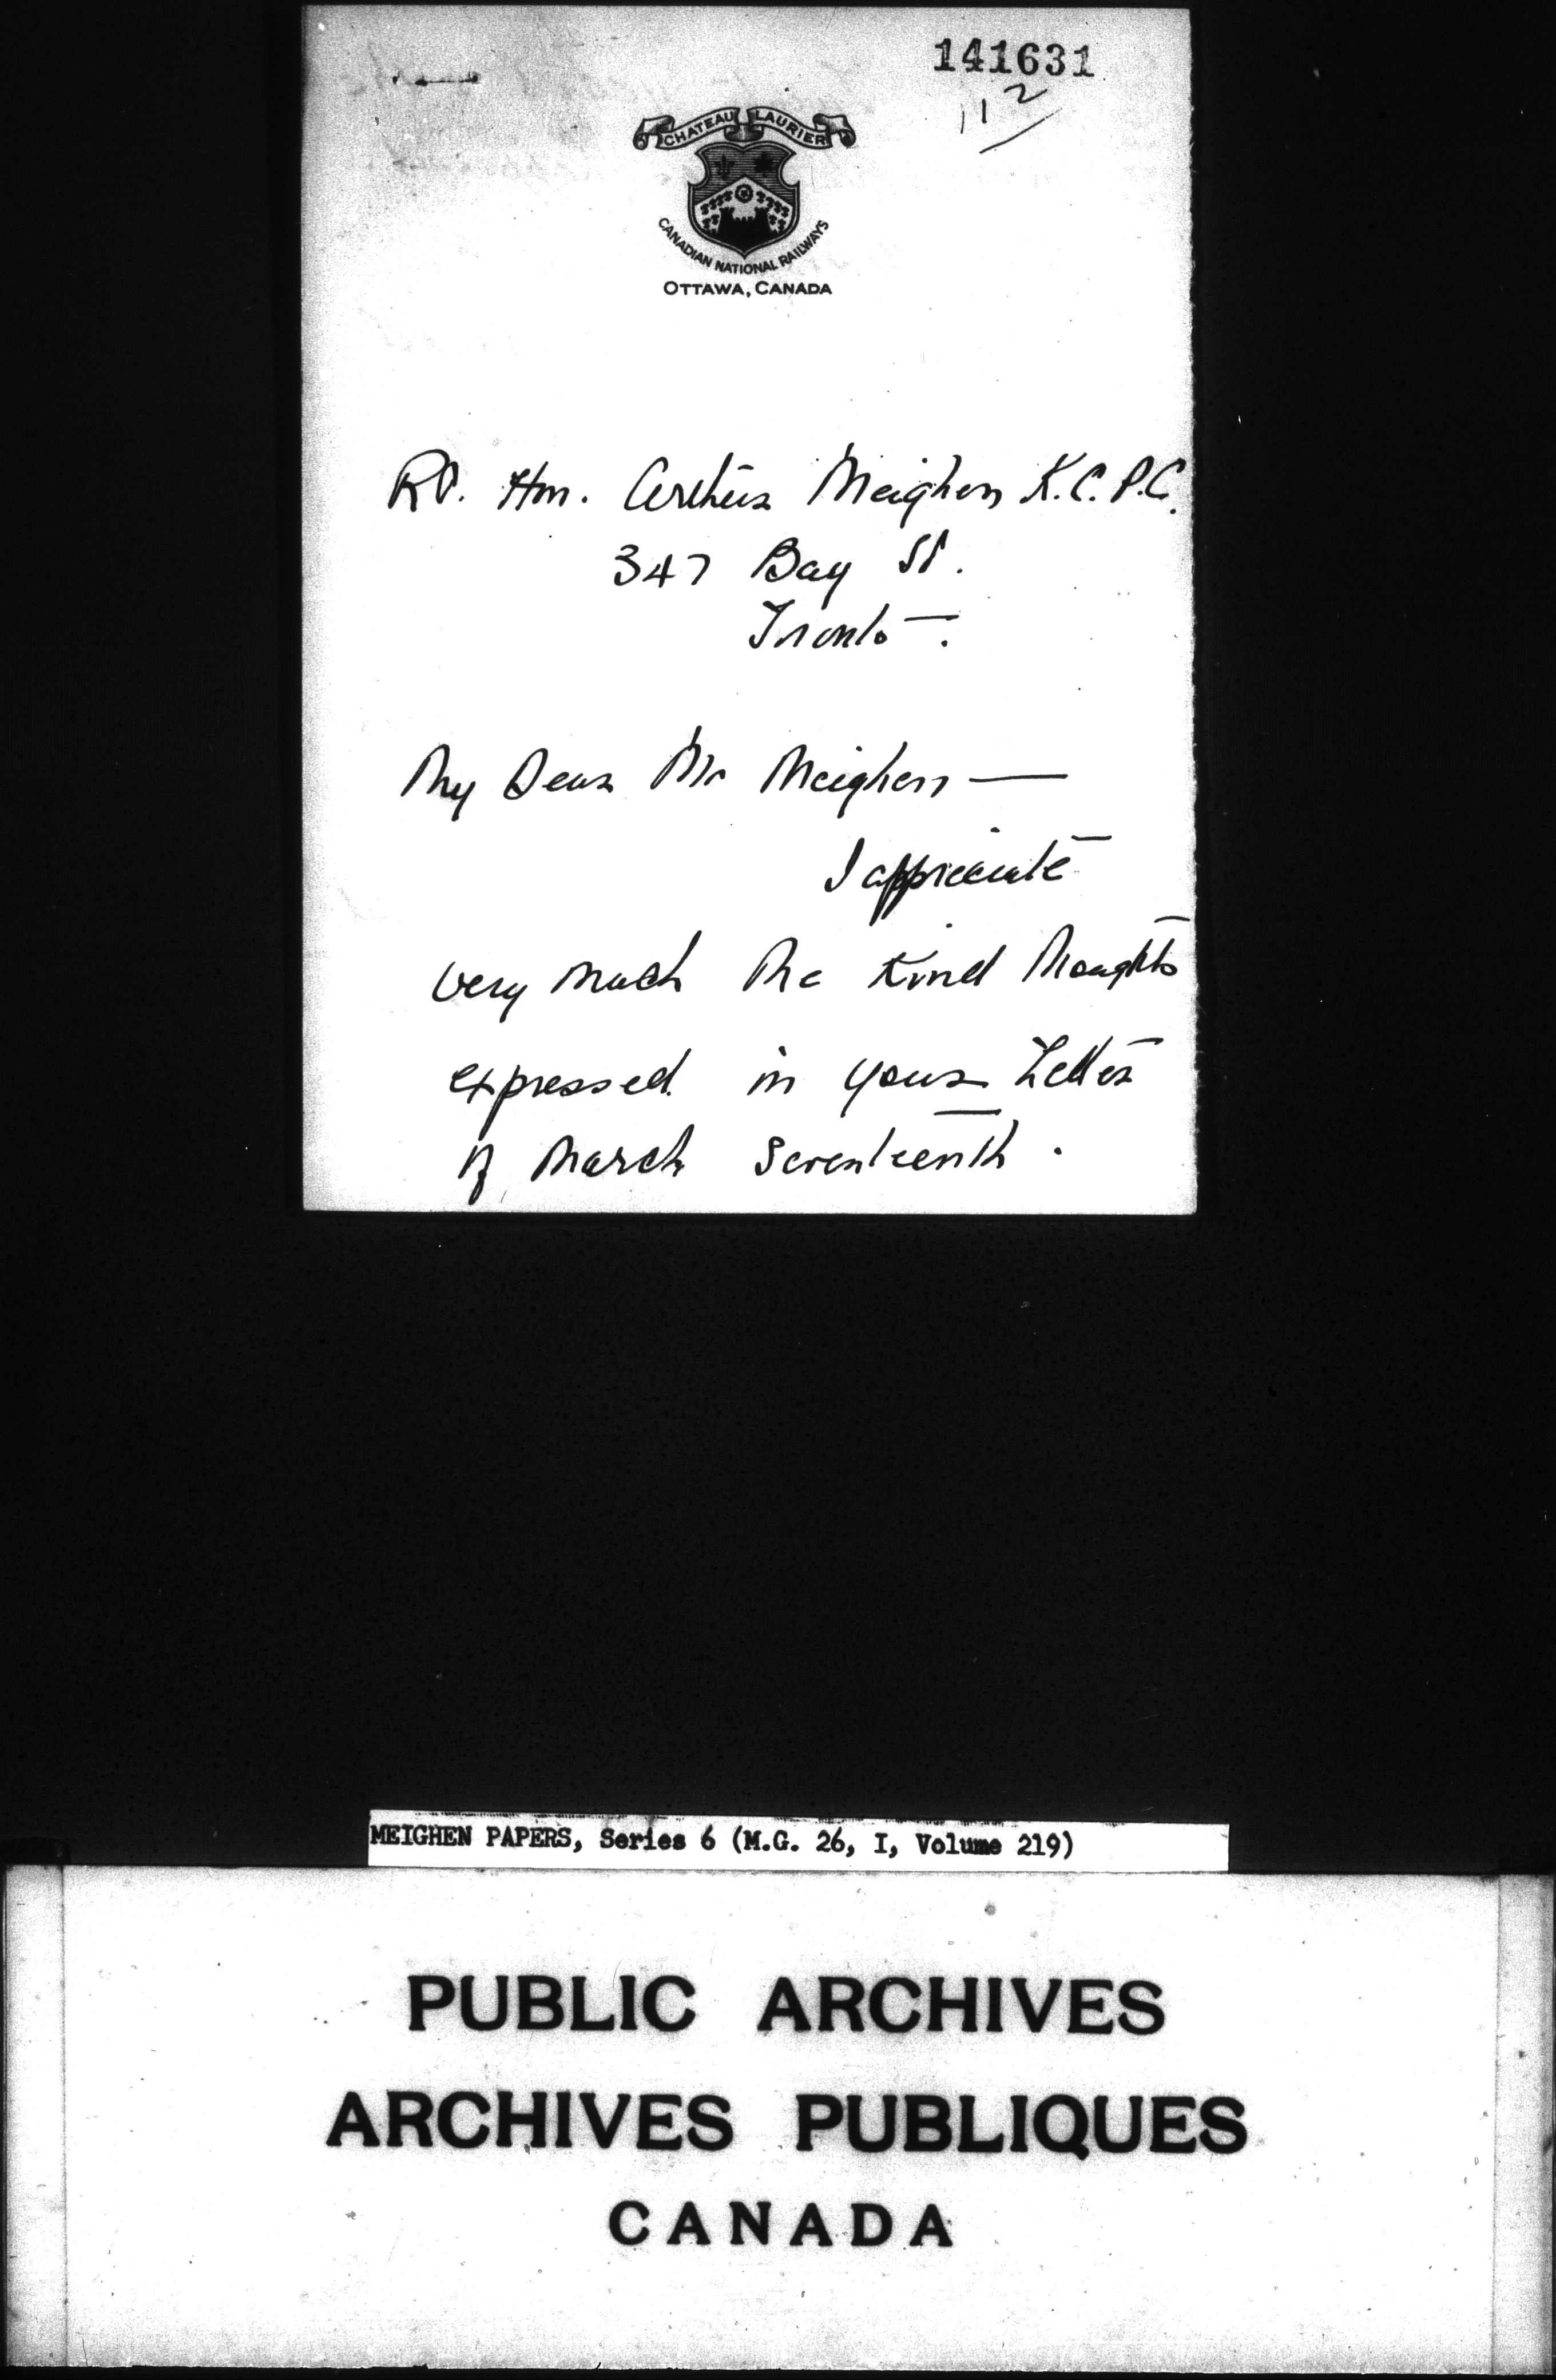 141631
112
CHATEAU LAURIER
CANADIAN NATIONAL RAILWAYS
OTTAWA, CANADA
Rt. Hon. Arthur Meighen K.C. P.C.
347 Bay St.
Toronto.
My Dear Mr Meighen —
I appreciate
very much the kind thoughts
expressed in your letter
of March Seventeenth.
MEIGHEN PAPERS, Series 6 (M.G. 26, I, Volume 219)
PUBLIC ARCHIVES
ARCHIVES PUBLIQUES
CANADA